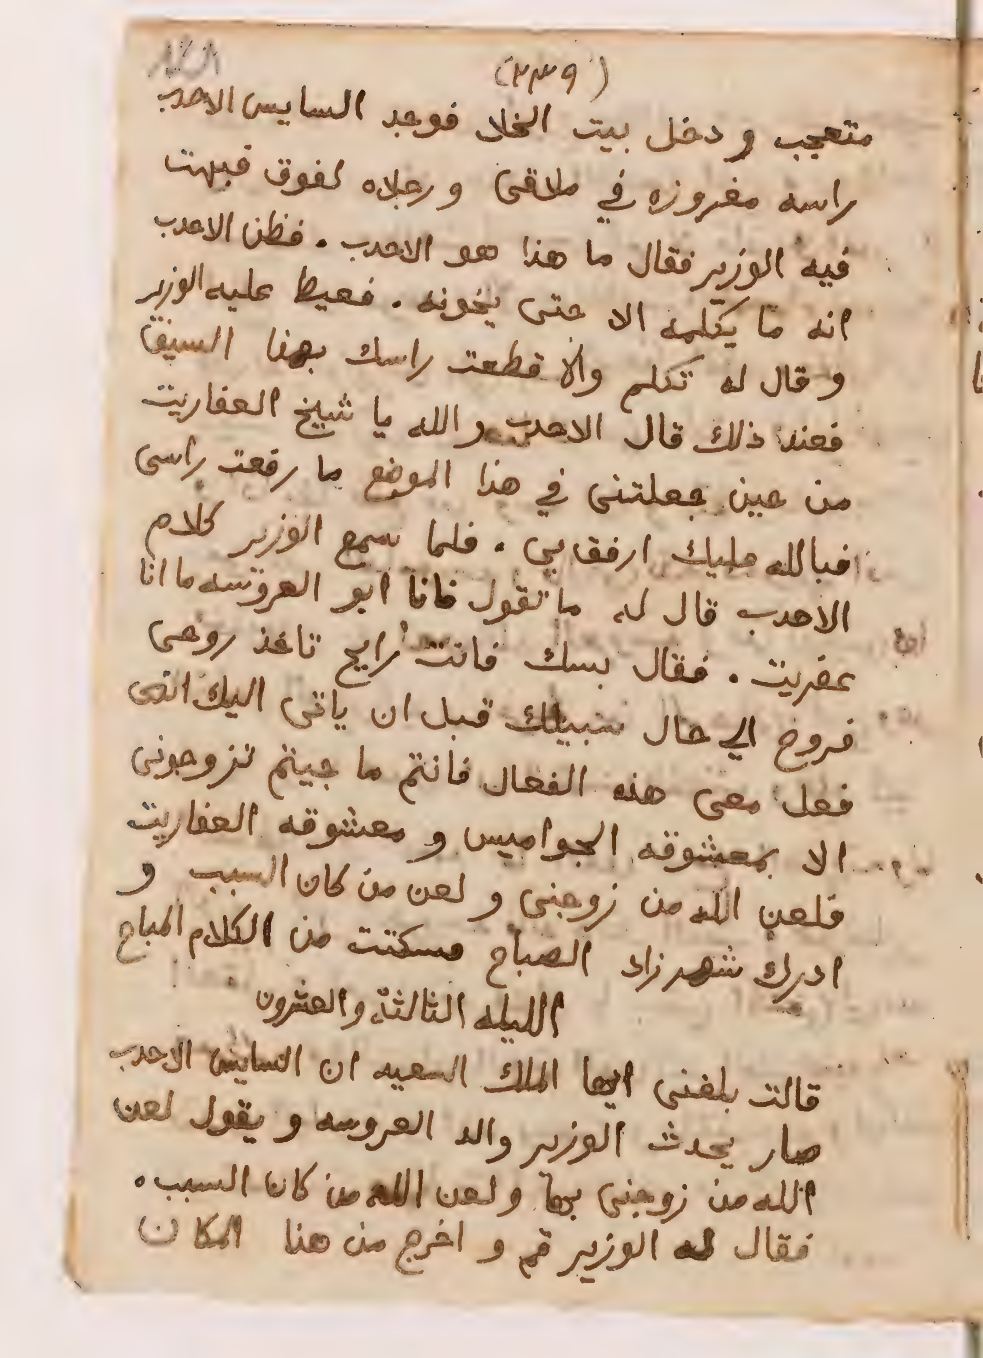 (٢٣٩)
متعجب و دخل بيت الخلا فوجد السايس الاحدب
راسه مغروزه في ملاقى و رجلاه لفوق فبهت
فيه الوزير فقال ما هذا هو الاحدب . فظن الاحدب
انه ما يكلمه الا حتى يخونه . فعيط عليه الوزير
و قال له تكلم والا قطعت راسك بهذا السيف
فعند ذلك قال الاحدب والله يا شيخ العفاريت
من حين جعلتنى في هذا الموضع ما رفعت راسى
فبالله عليك ارفق بي . فلما سمع الوزير كلام
الاحدب قال له ما تقول فانا ابو العروسه ما انا
عفريت . فقال بسك فانت رايح تاخذ روحى
فروح الي حال سبيلك قبل ان ياتى اليك الذى
فعل معى هذه الفعال فانتم ما جيتم تزوجونى
الا بمعشوقه الجواميس و معشوقه العفاريت
فلعن الله من زوجنى و لعن من كان السبب و
ادرك شهرزاد الصباح فسكتت من الكلام المباح
الليله الثالثة والعشرون
قالت بلغنى ايها الملك السعيد ان السايس الاحدب
صار يحدث الوزير والد العروسه و يقول لعن
الله من زوجنى بها و لعن الله من كان السبب .
فقال له الوزير قم و اخرج من هنا المكان